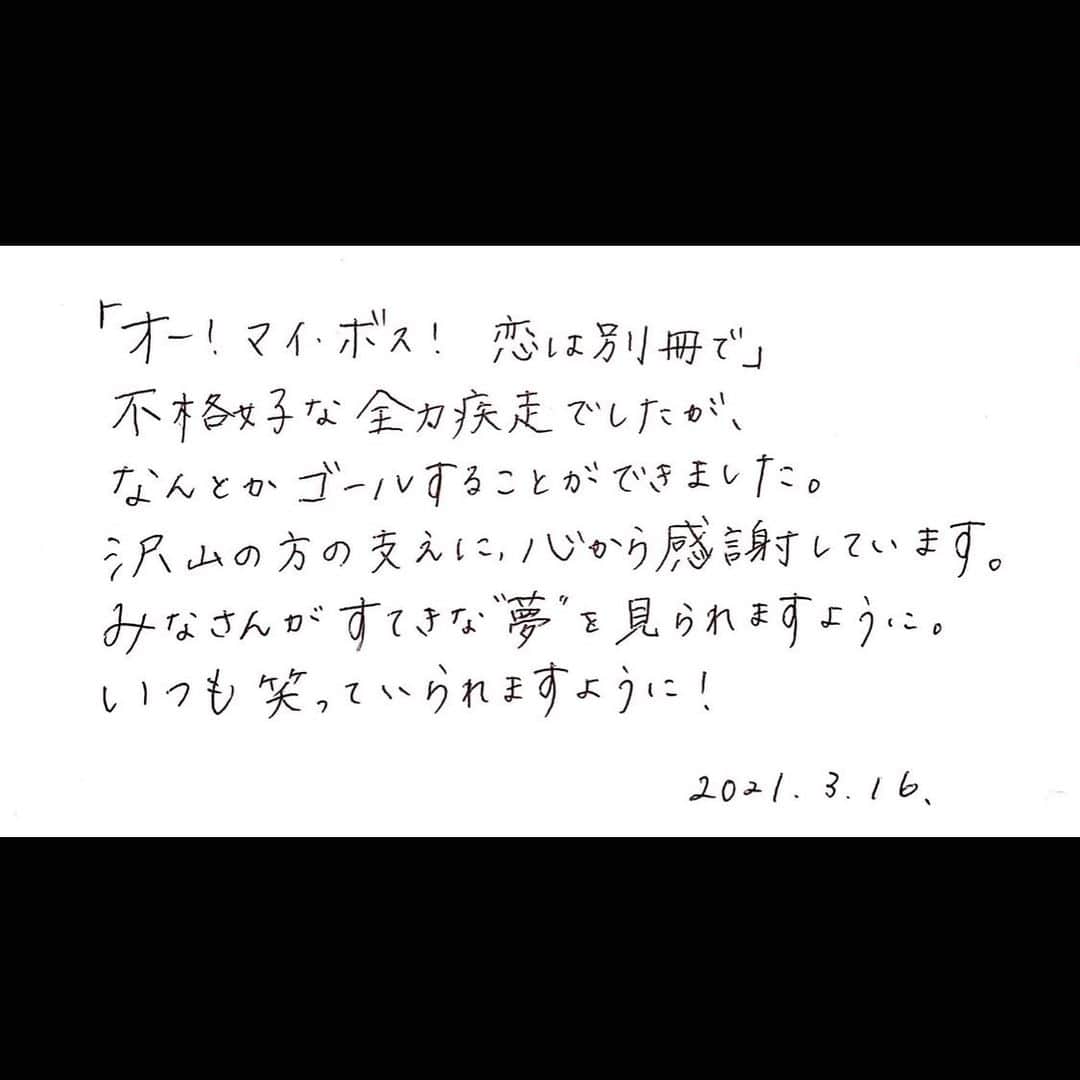 「オー！マイ・ボス！ 恋は別冊で」
不格好な全力疾走でしたが、
なんとかゴールすることができました。
沢山の方の支えに、心から感謝しています。
みなさんがすてきな"夢"を見られますように。
いつも笑っていられますように！
2021.3.16、